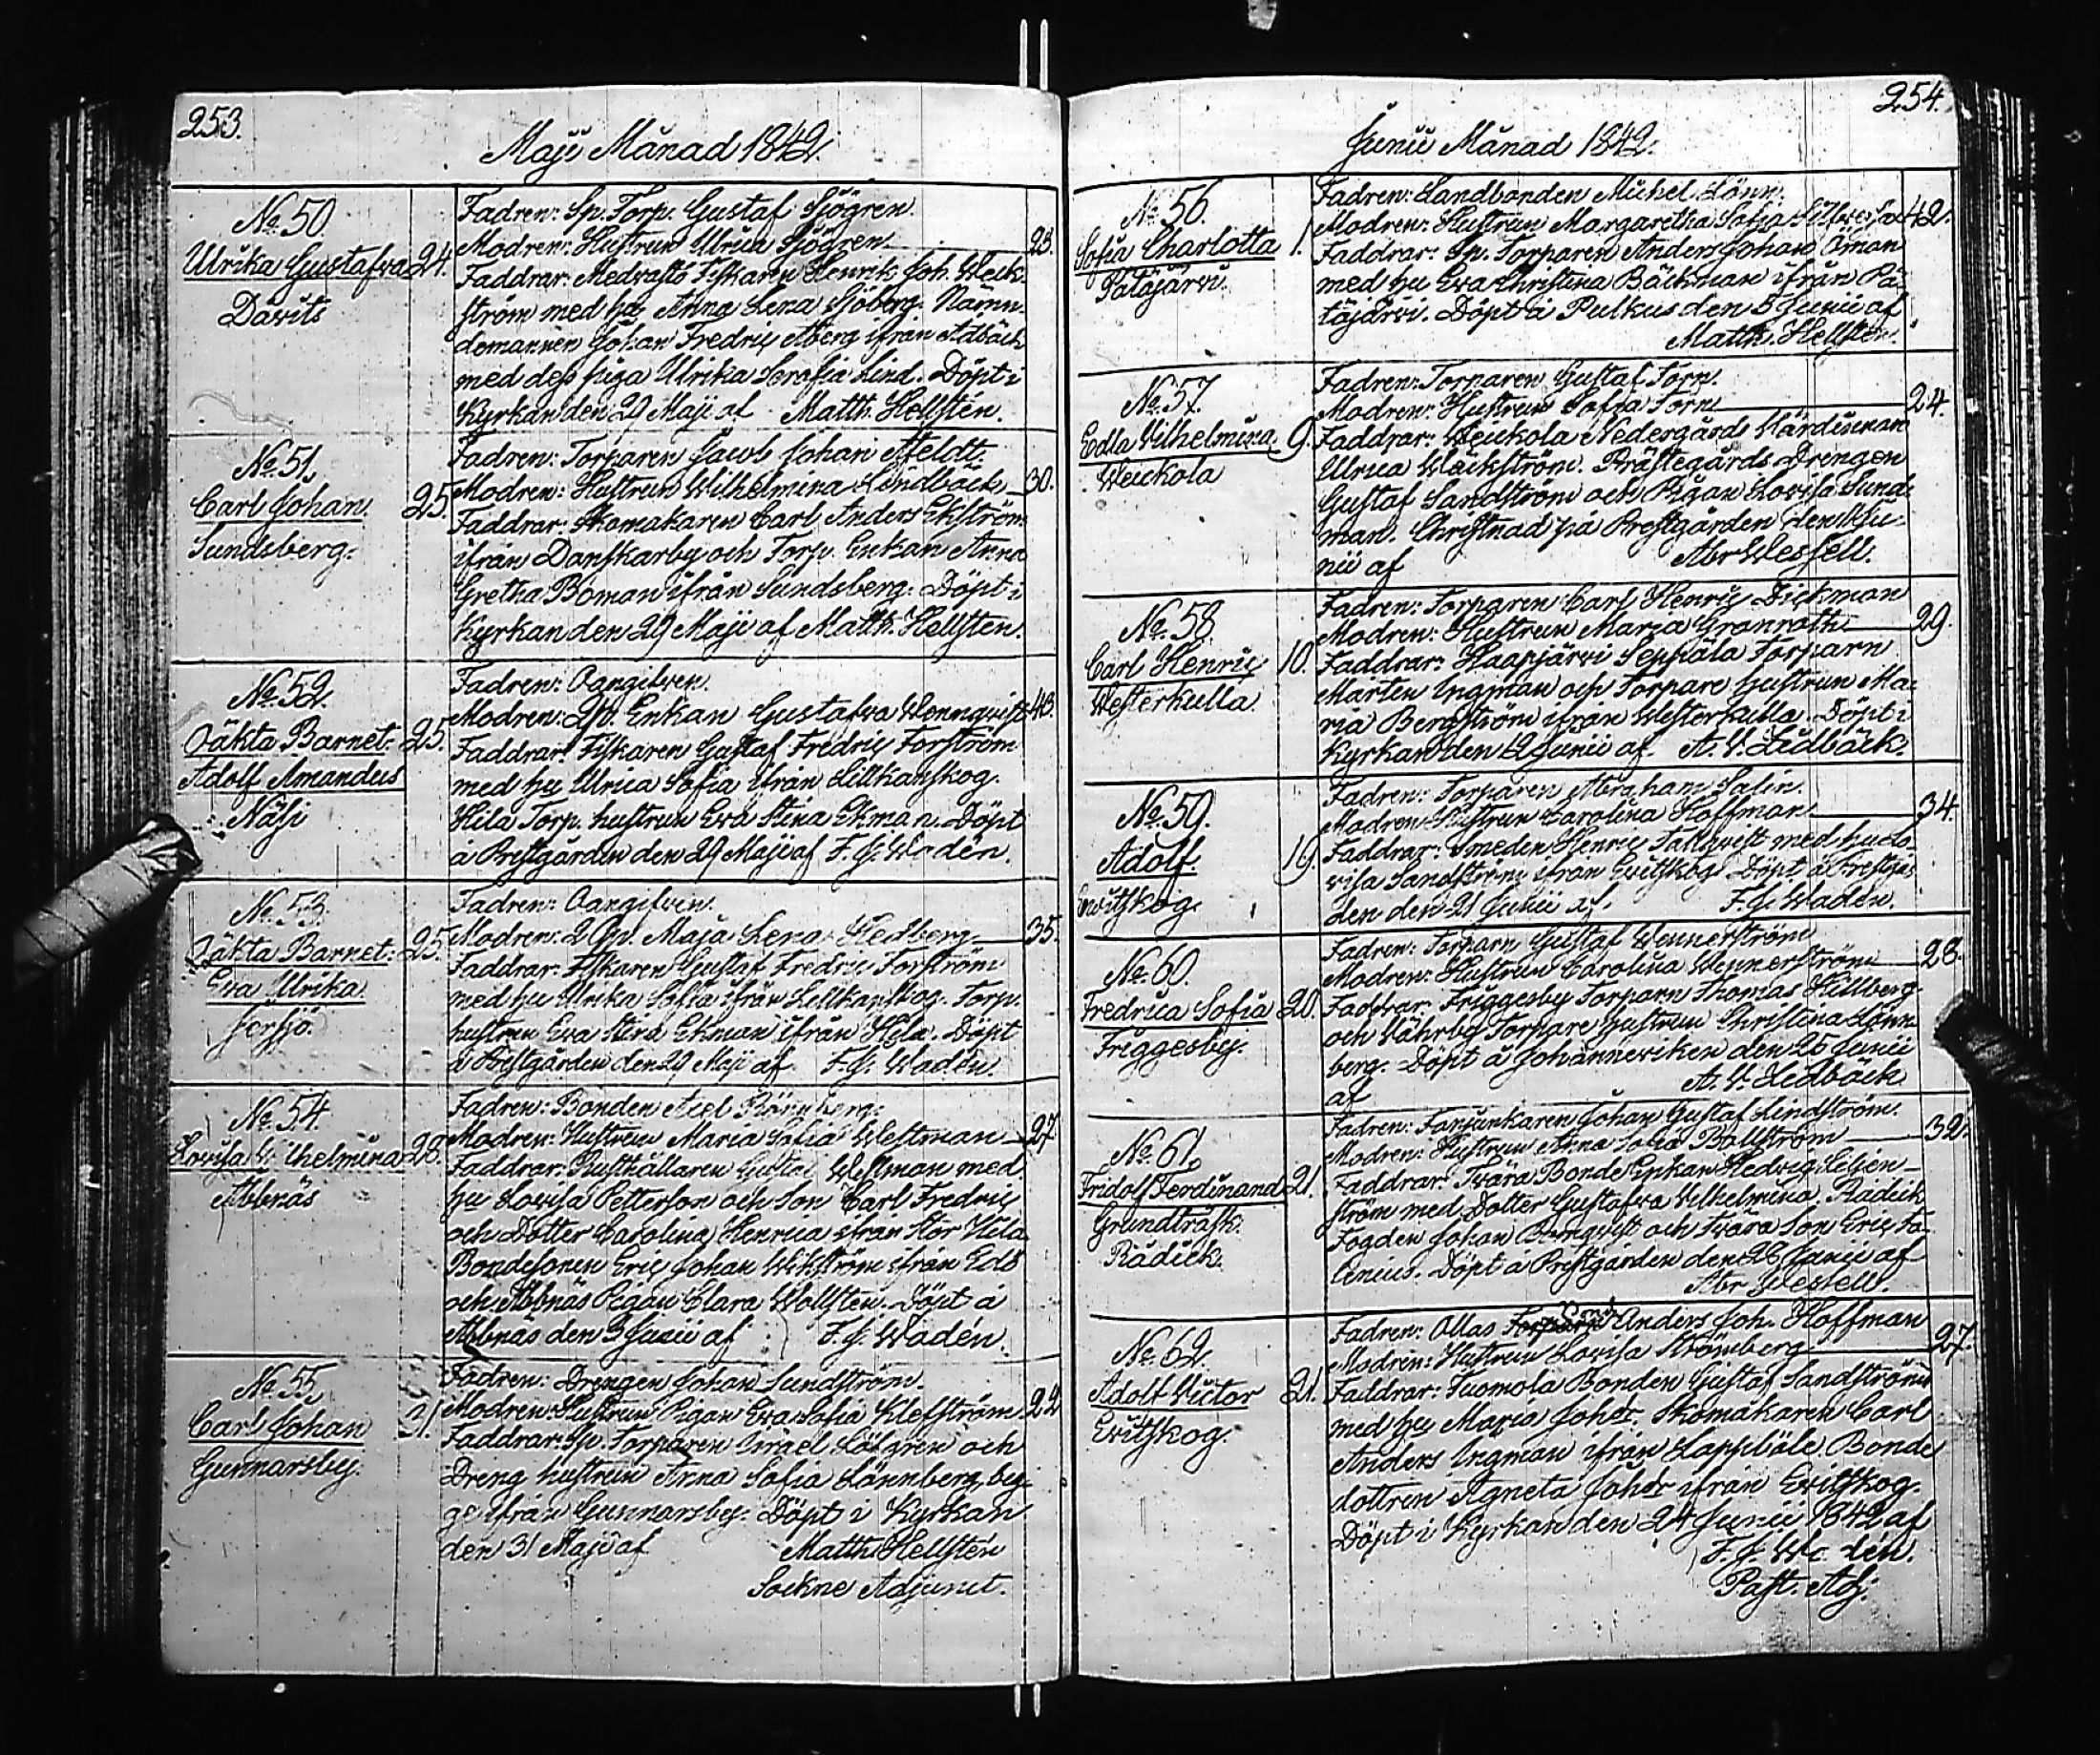 253.
Maji Månad 1842.
No. 50
Ulrika Gustafva 24.
Davits
Fadren: Sp. Torp. Gustaf Sjögren.
Modren: Hustrun Ulrica Sjögren 23.
Faddrar: Medvasto Fiskaren Henrik Joh. Weck-
ström med hu Anna Lena Sjöberg. Nämn-
demannen Johan Fredric Åberg ifrån
med dess piga Ulrika Serafia Lind. Döpt i
Kyrkan den 29 Maji af Matth. Hellsten.
No. 51.
Carl Johan 25.
Sundsberg.
Fadren: Torparen Jacob Johan Afeldt.
Modren: Hustrun Wilhelmina Lindbäck 30.
Faddrar: Skomakaren Carl Anders Ekström
ifrån Danskarby och Torp. Enkan Anna
Gretha Boman ifrån Sundsberg. Döpt i
Kyrkan den 29 Maji af Matth. Hellsten.
No. 52.
Oäkta Barnet: 25.
Adolf Amandus
Näsi
Fadren: Oangifven.
Modren: Enkan Gustafva Wennqvist 43.
Faddrar: Fiskaren Gustaf Fredric Forström
med hu Ulrica Sofia ifrån Lillkanskog.
Hila Torp. hustrun Eva Stina Ekman. Döpt
å Prestgården den 29 Maji af F. J. Wadén.
No. 53.
Oäkta Barnet: 25.
Eva Ulrika
Jorsjö.
Fadren: Oangifven.
Modren: Maja Lena Hedberg 35.
Faddrar: Fiskaren Gustaf Fredric Forström
med hu Ulrika Sofia ifrån Lillkanskog. Torp.
hustrun Eva Stina Ekman ifrån Hila. Döpt
å Prestgården den 29 Maji af F. J. Wadén.
No. 54.
Lovisa Wilhelmina 28.
Abbnäs
Fadren: Bonden Axel Rönnberg.
Modren: Hustrun Maria Sofia Westman 27.
Faddrar: Rusthållaren Gustaf Westman med
hu Lovisa Petterson och Son Carl Fredric
och Dotter Carolina Henrica ifrån Stor Hila
Bondesonen Eric Johan Wikström ifrån Edö
och Abbnäs Pigan Clara Wollsten. Döpt å
Abbnäs den 3 Junii af F. J. Wadén.
No. 55.
Carl Johan 21.
Gunnarsby.
Fadren: Drengen Johan Sundström.
Modren: Hustrun Pigan Eva Sofia Klefström 24
Faddrar: Sp. Torparen Israel Löfgren och
Dreng hustrun Anna Sofia Lönnberg, beg-
ge ifrån Gunnarsby. Döpt i Kyrkan
den 31 Maji af Matth. Hellstén
Sockne Adjunct.
254.
Junii Månad 1842.
No. 56.
Sofia Charlotta 1.
Pätäjärvi.
Fadren: Landbonden Michel Lönn.
Modren: Hustrun Margaretha Sofia 42.
Faddrar: Sp. Torparen Anders Johan Öman
med hu Eva Christina Bäckman ifrån Pä-
täjärvi. Döpt å Pulkus den 5 Junii af
Matth. Hellsten.
No. 57.
Edla Wilhelmina 9.
Weickola
Fadren: Torparen Gustaf Törn.
Modren: Hustrun Sofia Törn 24.
Faddrar: Weickola Nedergårds Wärdinnan
Ulrica Weckström. Prästegårds Drengen
Gustaf Sandström och Pigan Lovisa Sund-
man. Christnad på Prestgården den Ju-
nii af Abr Wessell.
No. 58.
Carl Henric 10.
Westerkulla
Fadren: Torparen Carl Henric Dickman
Modren: Hustrun Maria Granroth 29.
Faddrar: Haapjärvi Seppälä Torparn
Mårten Ingman och Torpare hustrun Ma-
ria Bergström ifrån Westerkulla. Döpt i
Kyrkan den 12 Junii af A. V. Lidbäck.
No. 59.
Adolf. 19.
Evitskog.
Fadren: Torparen Abraham Salin.
Modren: Hustrun Carolina Hoffman 34.
Faddrar: Smeden Henric Tallqvist med hu Lo-
visa Sandström ifrån Evitskog. Döpt å Prestgår-
den den 21 Junii af F. J. Wadén.
No. 60.
Fredrica Sofia 20.
Friggesby.
Fadren: Torparn Gustaf Wennerström
Modren: Hustrun Carolina Wennerström 28.
Faddrar: Friggesby Torparn Thomas Hillberg
och Wåhrby Torpare hustrun Christina Lönn-
berg. Döpt å Johannesviken den 26 Junii
af A. V. Lidbäck
No. 61.
Fridolf Ferdinand 21.
Grundträsk.
Rådick.
Fadren: Fanjunkaren Johan Gustaf Lindström.
Modren: Hustrun Anna Sofia Bollström 32.
Faddrar: Tvära Bonde Enkan Hedvig Liljen-
ström med Dotter Gustafva Wilhelmina. Rådick
Fogden Johan Bergqvist och Tvära Son Eric Fa-
lenius. Döpt å Prestgården den 26 Junii af
Abr Wessell.
No. 62.
Adolf Victor 21.
Evitskog.
Fadren: Ollas Bond. Anders Joh. Hoffman
Modren: Hustrun Lovisa Strömberg 27.
Faddrar: Tuomola Bonden Gustaf Sandström
med hu Maria Johdr. Skomakaren Carl
Anders Ingman ifrån Lappböle. Bonde
dottren Agneta Johdr ifrån Evitskog.
Döpt i Kyrkan den 24 Junii 1842 af
F. J. Wadén.
Past. Adj.